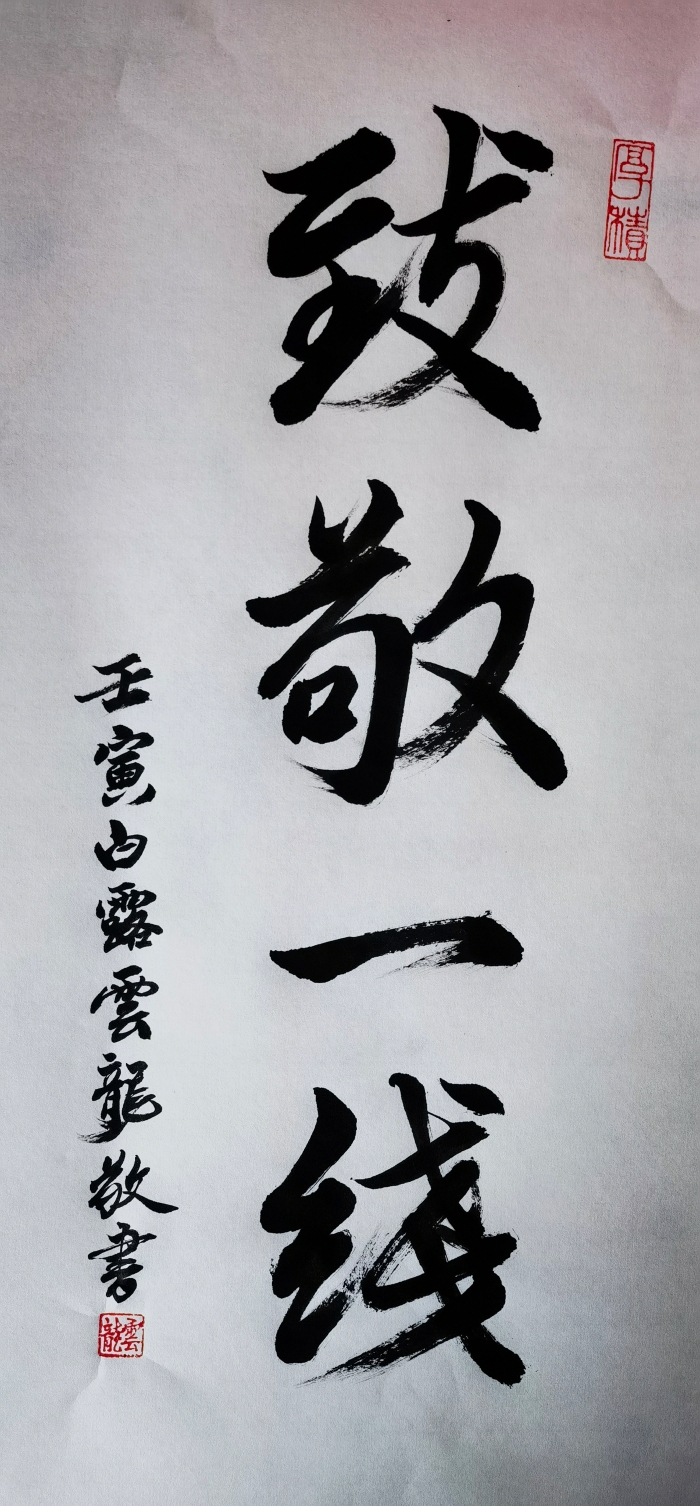 厚积
致敬一线
壬寅白露雲龍敬書
雲龍